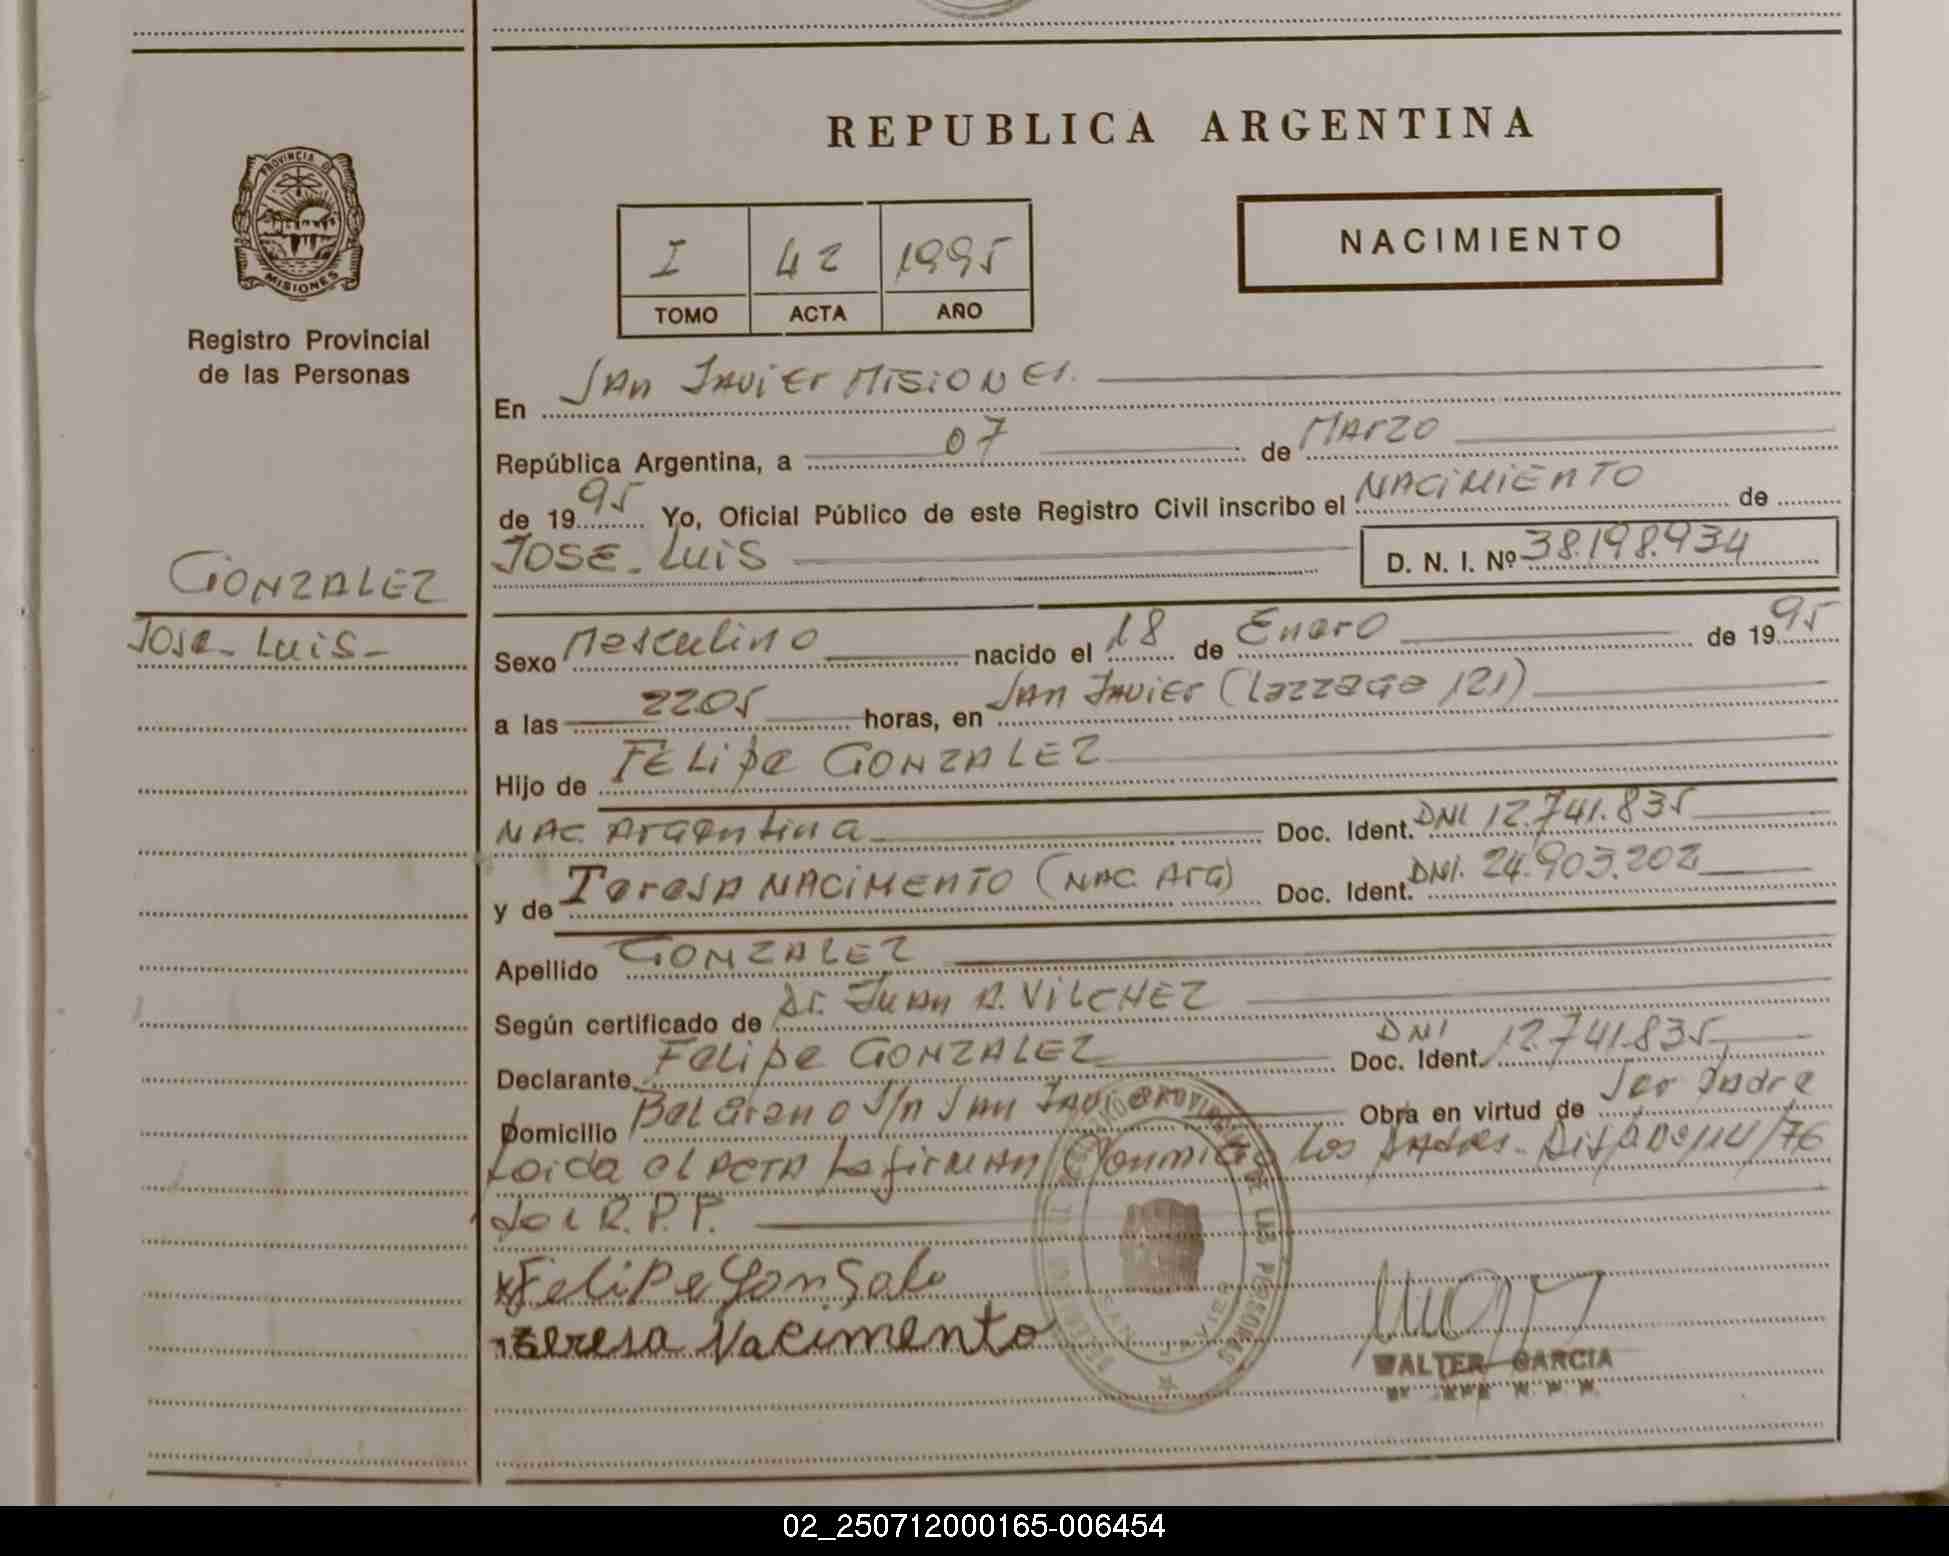 REPUBLICA ARGENTINA
PROVINCIA DE
MISIONES
Registro Provincial
de las Personas
I 42 1995
TOMO ACTA AÑO
NACIMIENTO
En San Javier Misiones.
República Argentina, a 07 de Marzo
de 1995 Yo, Oficial Público de este Registro Civil inscribo el NACIMIENTO de
JOSE-LUIS D. N. I. Nº 38.198.934
GONZALEZ
JOSE-LUIS-
Sexo Masculino nacido el 18 de Enero de 1995
a las 2205 horas, en San Javier (Lazzaga 121)
Hijo de FELIPE GONZALEZ
NAC. Argentina Doc. Ident. DNI 12.741.835
y de Teresa NACIMENTO (NAC. Arg) Doc. Ident. DNI. 24.903.202
Apellido GONZALEZ
Según certificado de Dr. Juan R. VILCHEZ
Declarante Felipe GONZALEZ Doc. Ident. DNI 12.741.835
Domicilio Belgrano S/n San Javier Obra en virtud de Ser Padre
Leida el ACTA La firman Conmigo Los Padres. 114/76
del R.P.P.
Felipe Gonsale
teresa Nacimento
SAN JAVIER
WALTER GARCIA
02_250712000165-006454